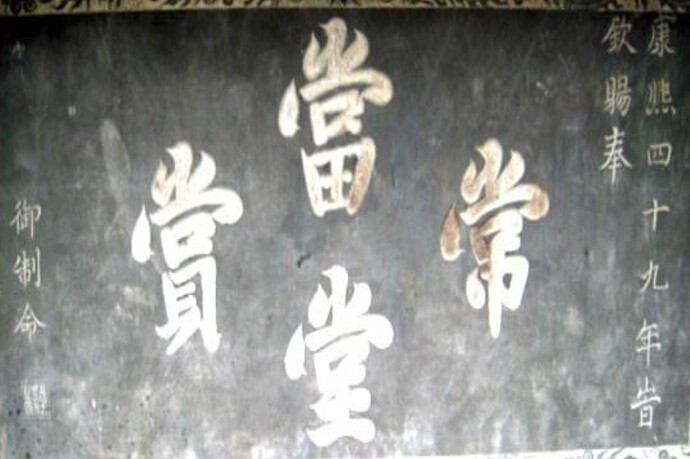 康熙四十九年旹
欽賜奉
常
當
堂
賞
御制命